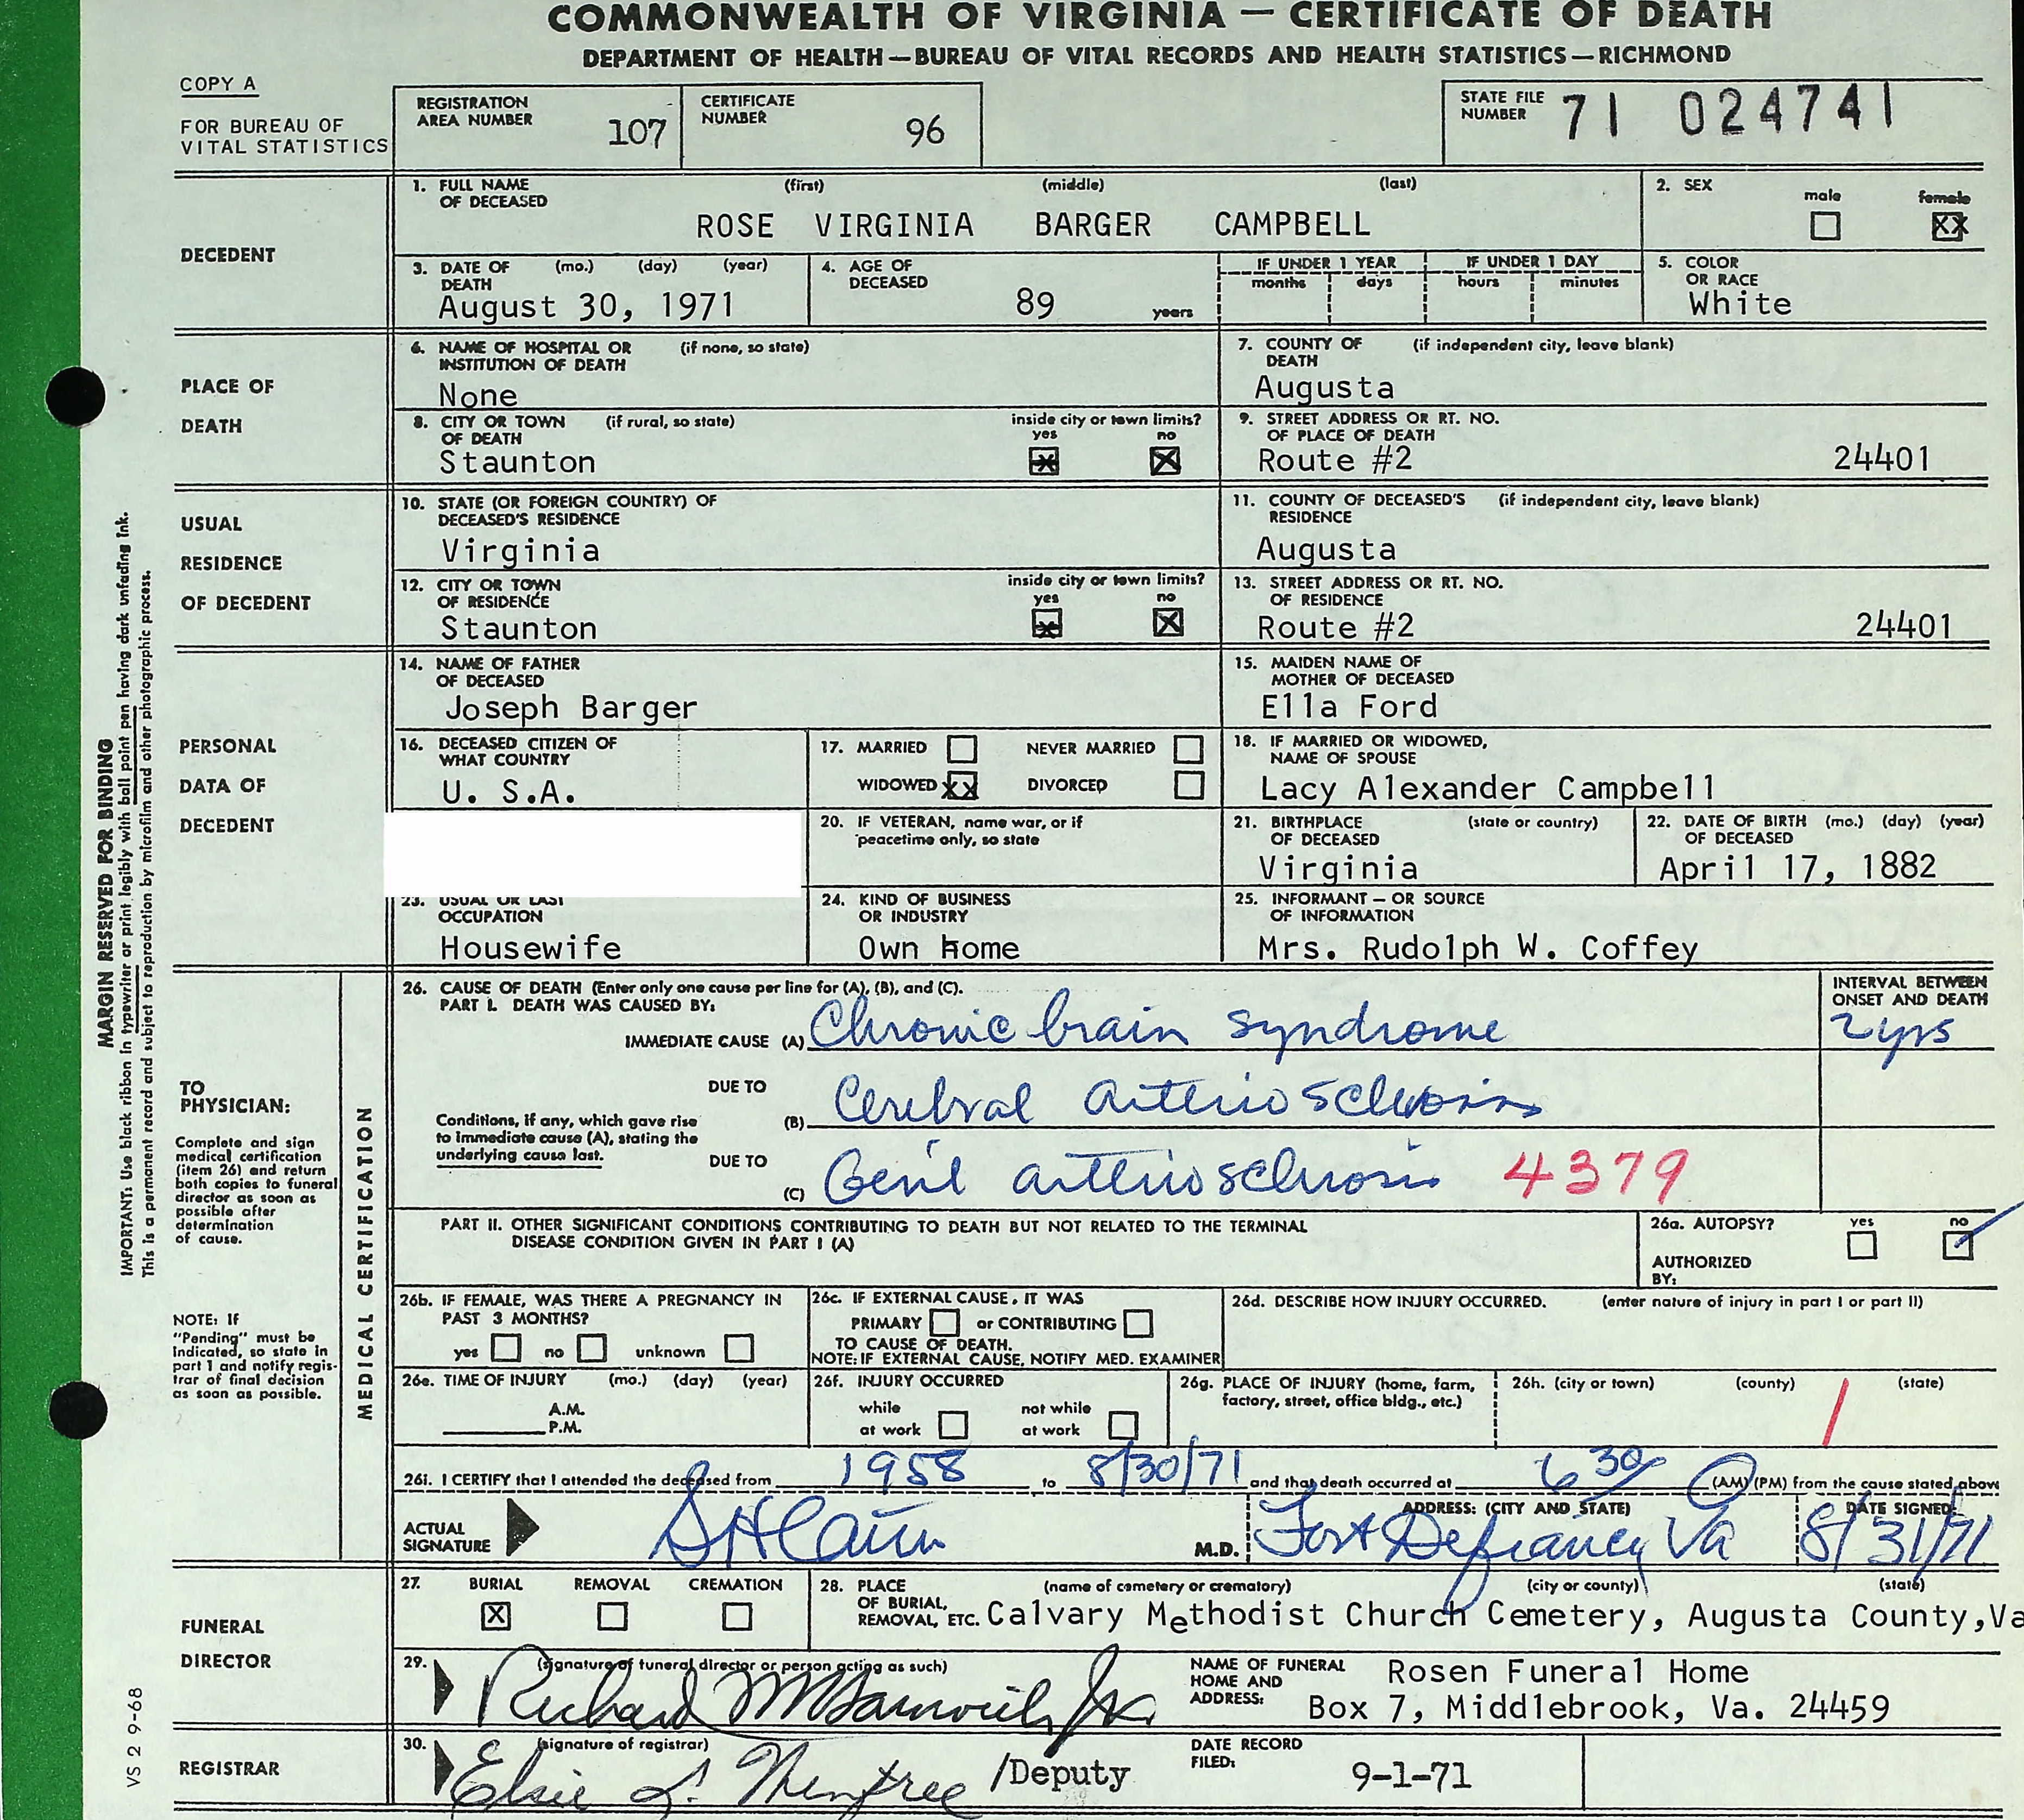 COMMONWEALTH OF VIRGINIA — CERTIFICATE OF DEATH
DEPARTMENT OF HEALTH—BUREAU OF VITAL RECORDS AND HEALTH STATISTICS—RICHMOND
COPY A
FOR BUREAU OF
VITAL STATISTICS
REGISTRATION
AREA NUMBER 107
CERTIFICATE
NUMBER 96
STATE FILE
NUMBER 71 024741
DECEDENT
1. FULL NAME (first) (middle) (last)
OF DECEASED
ROSE VIRGINIA BARGER CAMPBELL
2. SEX male female
XX
3. DATE OF (mo.) (day) (year)
DEATH
August 30, 1971
4. AGE OF
DECEASED
89 years
IF UNDER 1 YEAR IF UNDER 1 DAY
months days hours minutes
5. COLOR
OR RACE
White
PLACE OF
DEATH
6. NAME OF HOSPITAL OR (if none, so state)
INSTITUTION OF DEATH
None
7. COUNTY OF (if independent city, leave blank)
DEATH
Augusta
8. CITY OR TOWN (if rural, so state) inside city or town limits?
OF DEATH yes no
Staunton x X
9. STREET ADDRESS OR RT. NO.
OF PLACE OF DEATH
Route #2 24401
USUAL
RESIDENCE
OF DECEDENT
10. STATE (OR FOREIGN COUNTRY) OF
DECEASED'S RESIDENCE
Virginia
11. COUNTY OF DECEASED'S (if independent city, leave blank)
RESIDENCE
Augusta
12. CITY OR TOWN inside city or town limits?
OF RESIDENCE yes no
Staunton x X
13. STREET ADDRESS OR RT. NO.
OF RESIDENCE
Route #2 24401
PERSONAL
DATA OF
DECEDENT
14. NAME OF FATHER
OF DECEASED
Joseph Barger
15. MAIDEN NAME OF
MOTHER OF DECEASED
Ella Ford
16. DECEASED CITIZEN OF
WHAT COUNTRY
U. S.A.
17. MARRIED NEVER MARRIED
WIDOWED XX DIVORCED
18. IF MARRIED OR WIDOWED,
NAME OF SPOUSE
Lacy Alexander Campbell
20. IF VETERAN, name war, or if
peacetime only, so state
21. BIRTHPLACE (state or country)
OF DECEASED
Virginia
22. DATE OF BIRTH (mo.) (day) (year)
OF DECEASED
April 17, 1882
23. USUAL OR LAST
OCCUPATION
Housewife
24. KIND OF BUSINESS
OR INDUSTRY
Own home
25. INFORMANT — OR SOURCE
OF INFORMATION
Mrs. Rudolph W. Coffey
MARGIN RESERVED FOR BINDING
IMPORTANT: Use black ribbon in typewriter or print legibly with ball point pen having dark unfading ink.
This is a permanent record and subject to reproduction by microfilm and other photographic process.
TO
PHYSICIAN:
Complete and sign
medical certification
(item 26) and return
both copies to funeral
director as soon as
possible after
determination
of cause.
NOTE: IF
"Pending" must be
indicated, so state in
part 1 and notify regis-
trar of final decision
as soon as possible.
MEDICAL CERTIFICATION
26. CAUSE OF DEATH (Enter only one cause per line for (A), (B), and (C).
PART I. DEATH WAS CAUSED BY:
INTERVAL BETWEEN
ONSET AND DEATH
IMMEDIATE CAUSE (A) Chronic brain syndrome 2 yrs
DUE TO
Conditions, if any, which gave rise
to immediate cause (A), stating the
underlying cause last.
(B) Cerebral arteriosclerosis
DUE TO
(C) Gen'l arteriosclerosis 4379
PART II. OTHER SIGNIFICANT CONDITIONS CONTRIBUTING TO DEATH BUT NOT RELATED TO THE TERMINAL
DISEASE CONDITION GIVEN IN PART I (A)
26a. AUTOPSY? yes no
AUTHORIZED
BY:
26b. IF FEMALE, WAS THERE A PREGNANCY IN
PAST 3 MONTHS?
yes no unknown
26c. IF EXTERNAL CAUSE, IT WAS
PRIMARY or CONTRIBUTING
TO CAUSE OF DEATH.
NOTE: IF EXTERNAL CAUSE, NOTIFY MED. EXAMINER
26d. DESCRIBE HOW INJURY OCCURRED. (enter nature of injury in part I or part II)
26e. TIME OF INJURY (mo.) (day) (year)
A.M.
P.M.
26f. INJURY OCCURRED
while not while
at work at work
26g. PLACE OF INJURY (home, farm,
factory, street, office bldg., etc.)
26h. (city or town) (county) (state)
1
26i. I CERTIFY that I attended the deceased from 1958 to 8/30/71 and that death occurred at 6 30 (AM) (PM) from the cause stated above
ACTUAL
SIGNATURE
M.D.
ADDRESS: (CITY AND STATE)
Fort Defiance, Va
DATE SIGNED:
8/31/71
FUNERAL
DIRECTOR
27. BURIAL REMOVAL CREMATION
X
28. PLACE (name of cemetery or crematory) (city or county) (state)
OF BURIAL,
REMOVAL, ETC. Calvary Methodist Church Cemetery, Augusta County,Va
29. (signature of funeral director or person acting as such)
Richard Jr.
NAME OF FUNERAL
HOME AND
ADDRESS:
Rosen Funeral Home
Box 7, Middlebrook, Va. 24459
REGISTRAR
30. (signature of registrar)
Elsie /Deputy
DATE RECORD
FILED:
9-1-71
VS 2 9-68